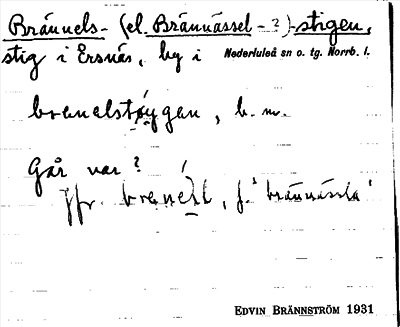 Brännels- (el. Brännässel- ?)-stigen,
stig i Ersnäs, by i Nederluleå sn o. tg. Norrb. l.
b. m.
Går var?
Jfr. f. "brännässla"
EDVIN BRÄNNSTRÖM 1931